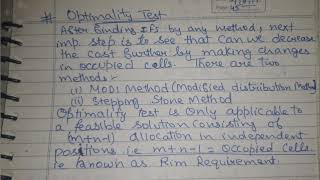 # Optimality Test
After finding IFS by any method, next
imp. step is to see that can we decrease
the cost further by making changes
in occupied cells. These are two
methods:-
(i) MODI Method (Modified distribution Method)
(ii) Stepping Stone Method
Optimality Test is Only applicable to
a feasible solution consisting of
(m+n-1) allocation in independent
positions i.e m+n-1 = Occupied cells.
is known as Rim Requirement.